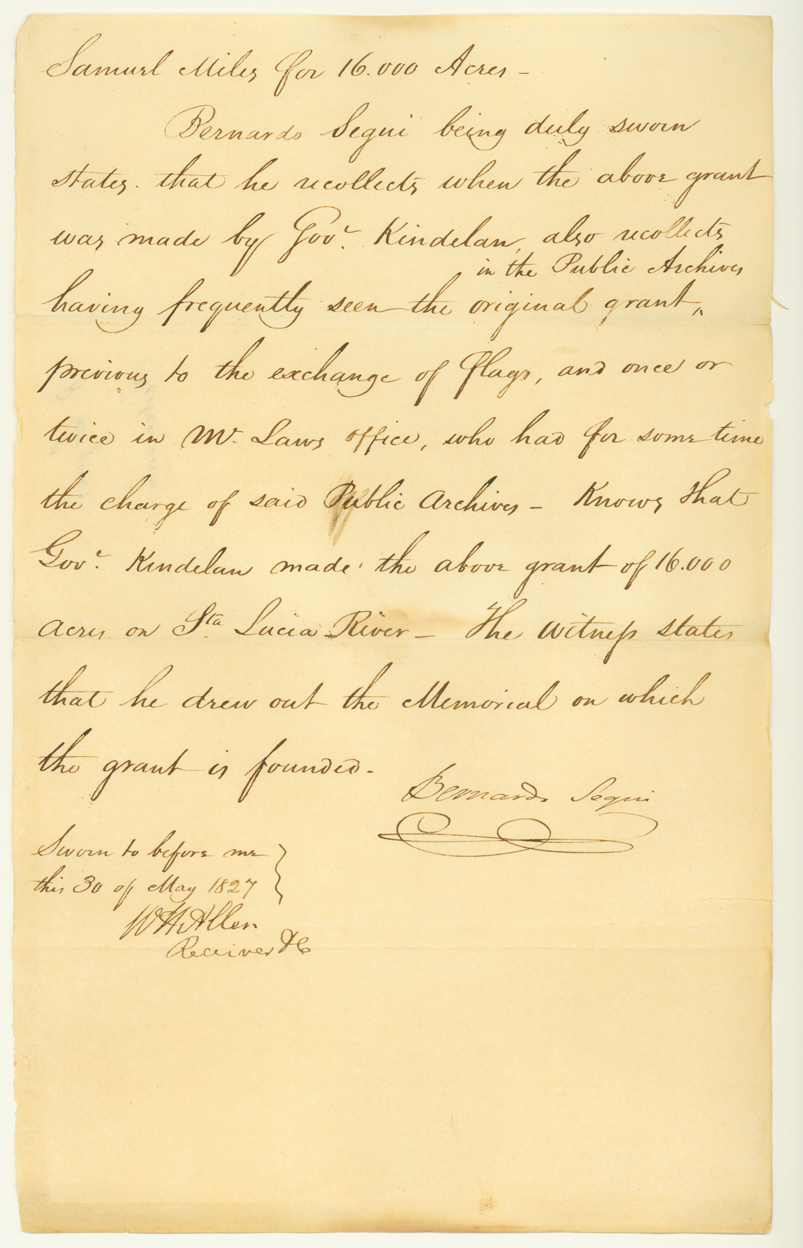 Samuel Miles for 16.000 Acres -
Bernardo Segui being duly sworn
states. that he recollects when the above grant
was made by Govr. Kindelan, also recollects
in the Public Archives
having frequently seen the original grant,
previous to the exchange of flags, and once or
twice in Mr. Laws office, who had for some time
the charge of said Public Archives - Knows that
Govr. Kindelan made the above grant of 16.000
Acres on Sta. Lucia River - The Witness states
that he drew out the Memorial on which
the grant is founded -
Bernardo Segui
Sworn to before me
this 30 of May 1827
W H Allen
Receiver &c